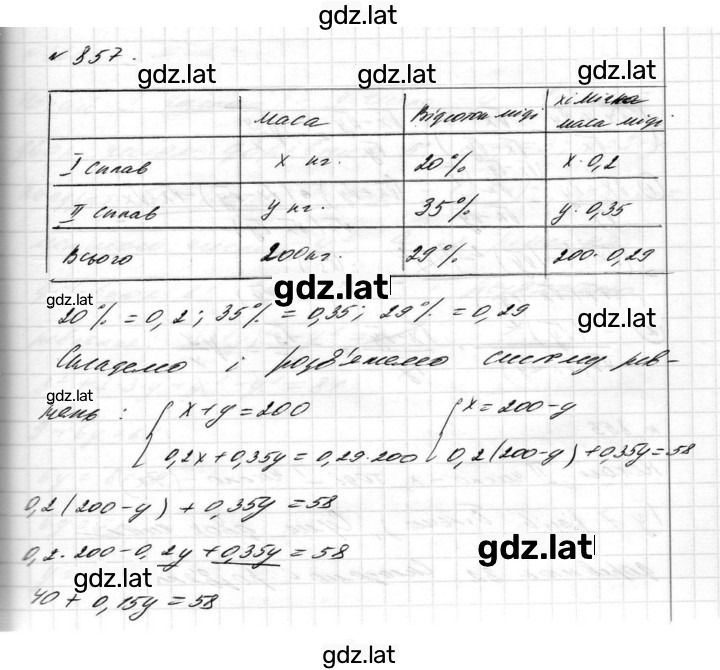 gdz.lat
№ 857.
gdz.lat gdz.lat gdz.lat
маса Відсотки міді маса міді
I сплав x кг. 20% x · 0,2
II сплав y кг. 35% y · 0,35
Всього 200кг. 29% 200 · 0,29
gdz.lat
gdz.lat
20% = 0,2; 35% = 0,35; 29% = 0,29
gdz.lat
Складемо і розв'яжемо систему рів-
gdz.lat
нянь : { x + y = 200 { x = 200 - y
0,2x + 0,35y = 0,29·200 0,2(200-y) + 0,35y = 58
0,2(200-y) + 0,35y = 58
0,2·200 - 0,2y + 0,35y = 58
gdz.lat
gdz.lat
40 + 0,15y = 58
gdz.lat